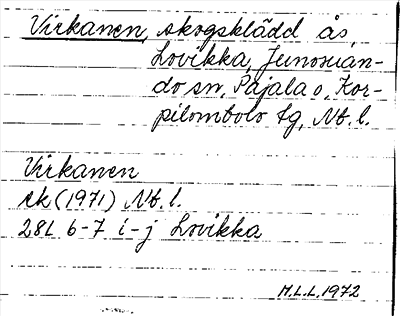 Virkanen, skogsklädd ås,
Lovikka, Junosuan-
do sn, Pajala o, Kor-
pilombolo tg, Nb. l.
Virkanen
ek (1971) Nb. l.
28L 6-7 i-j Lovikka
H.L.L. 1972